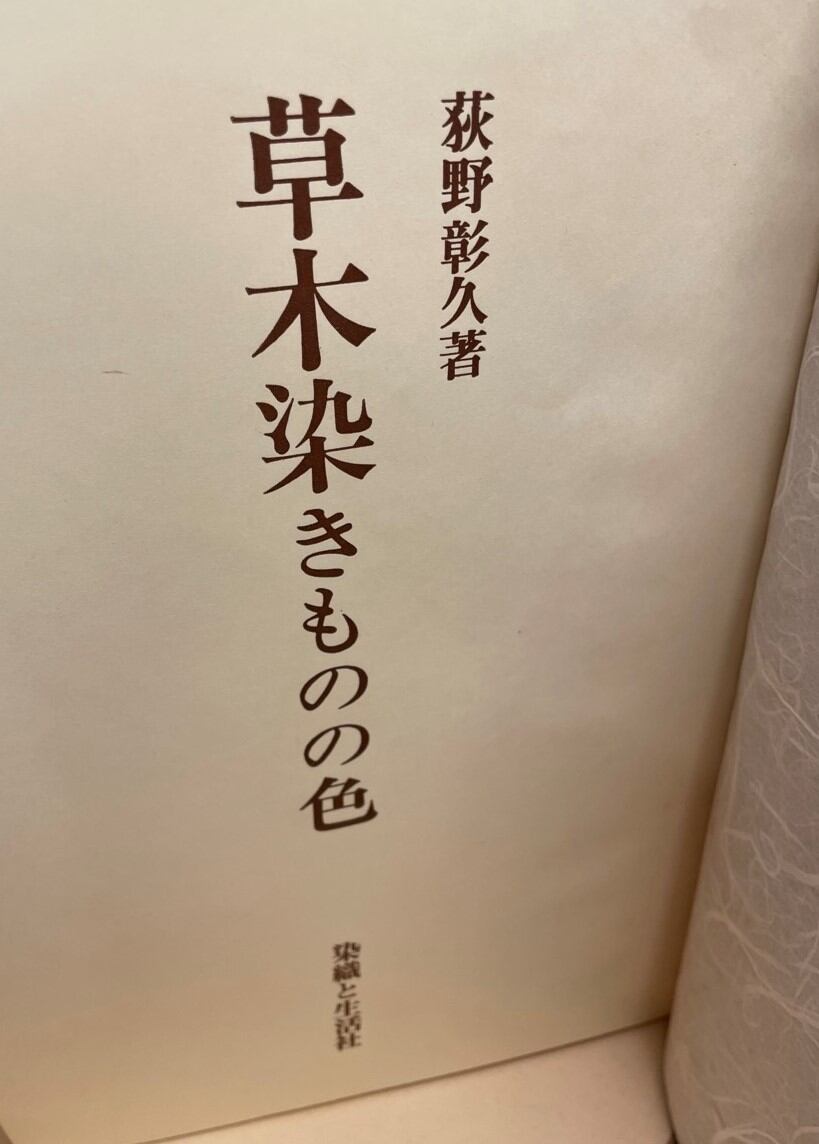 荻野彰久著
草木染きものの色
染織と生活社